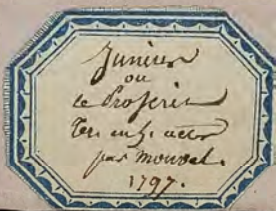 Junius
ou
le Proscrit
en actes
par Monvel.
1797.